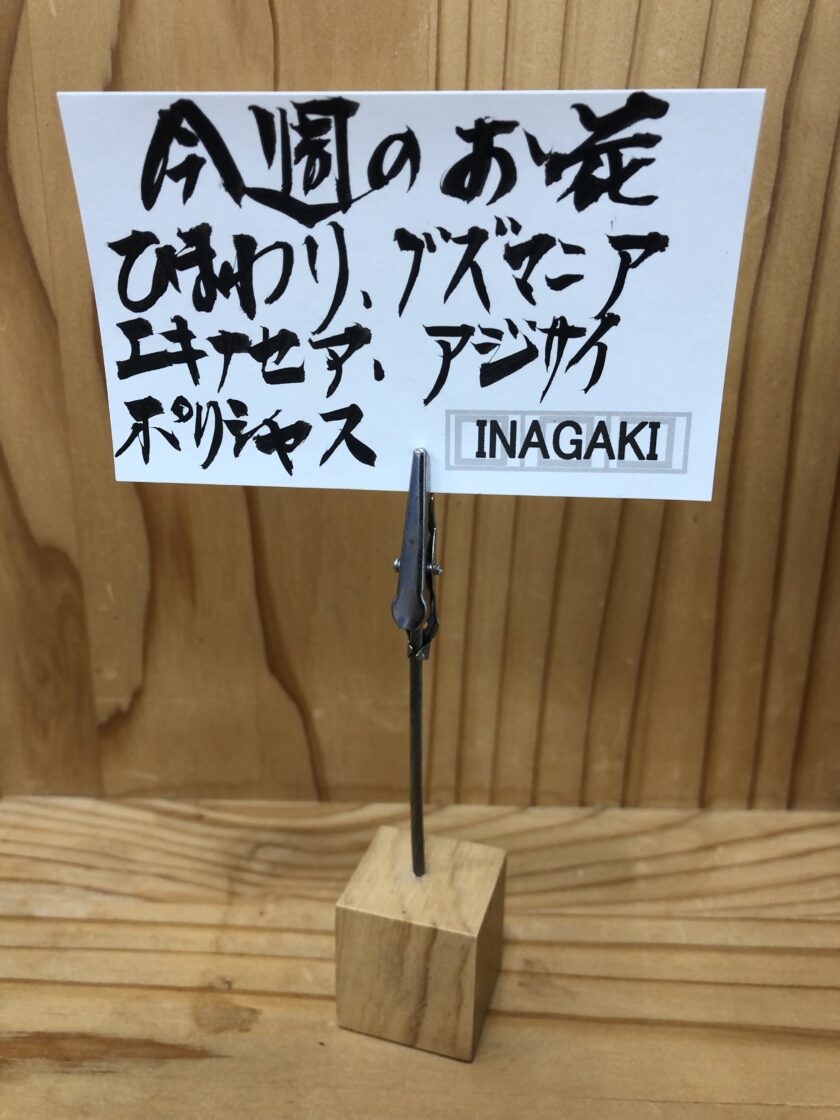 今週のお花
ひまわり、グズマニア
エキナセア、アジサイ
ポリシャス
INAGAKI